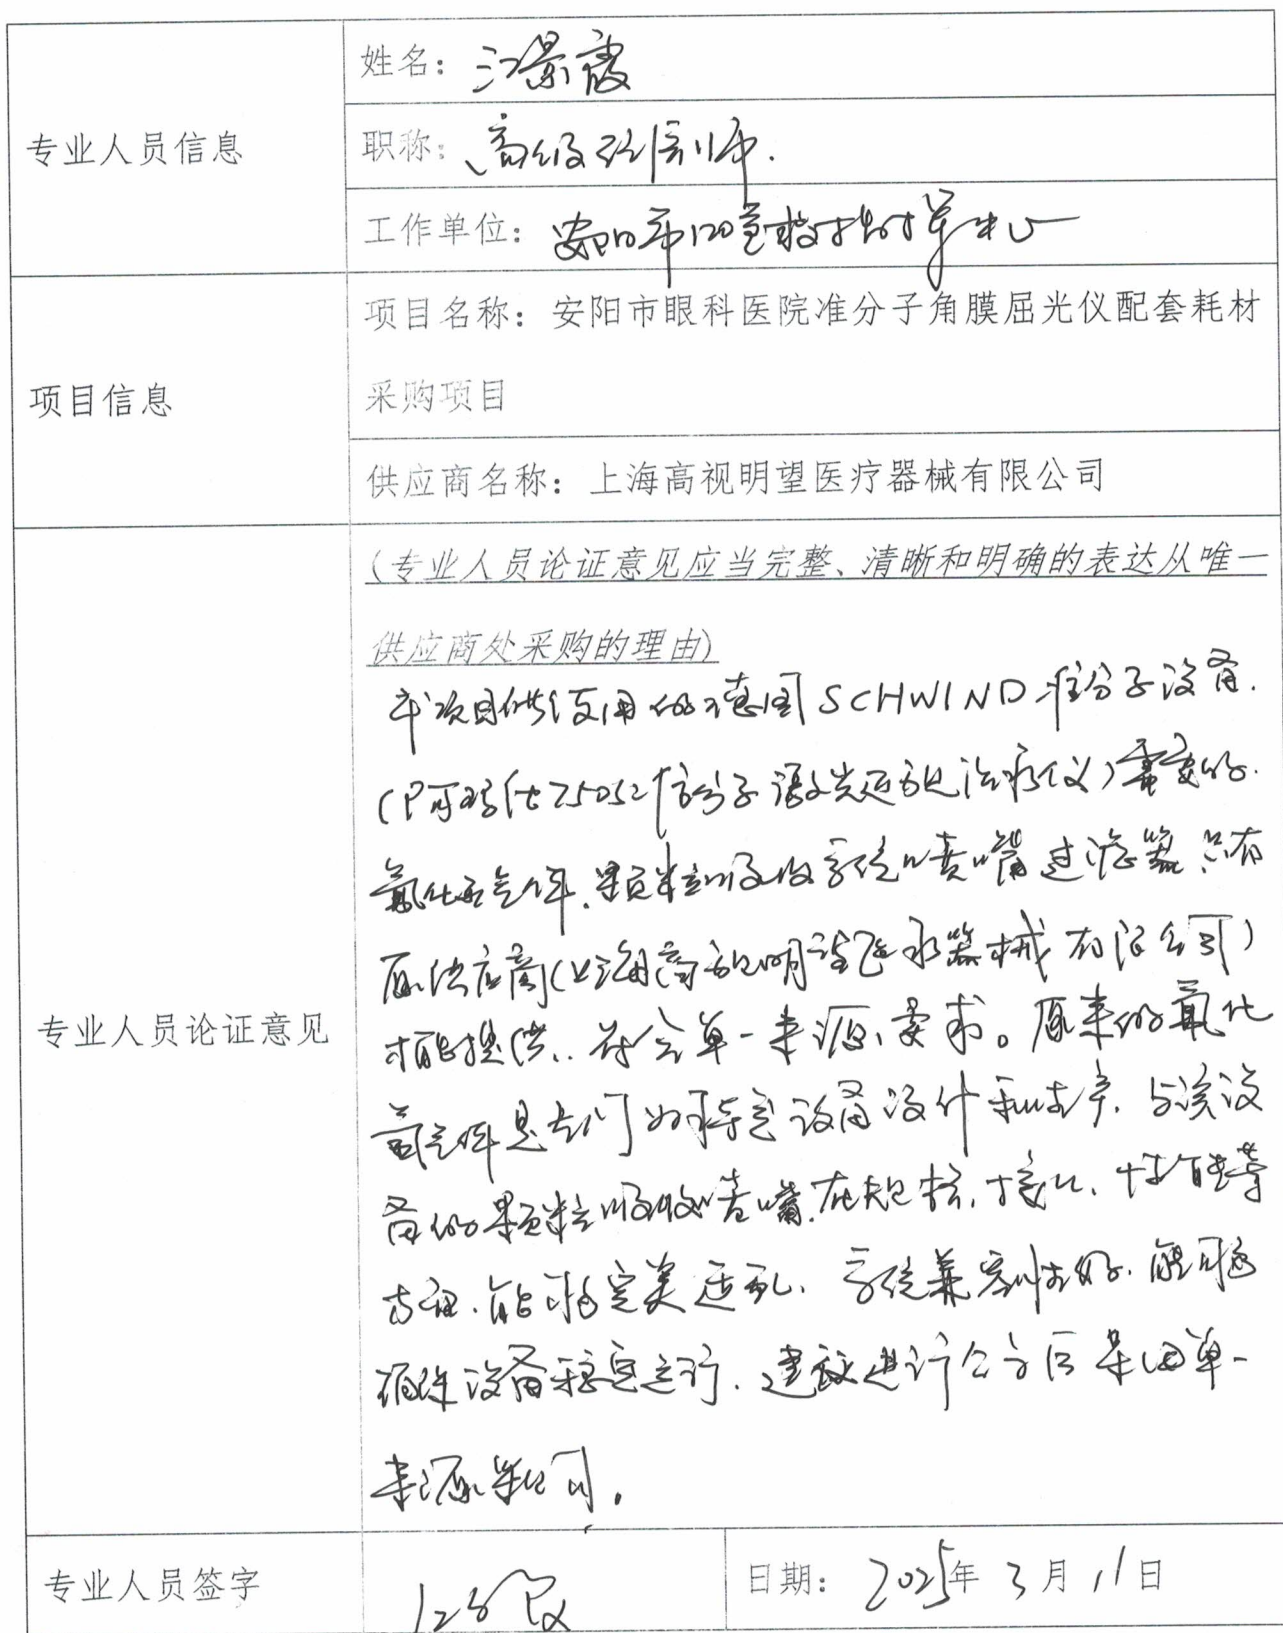 专业人员信息
姓名：景霞
职称：高级
工作单位：安阳市120急救指挥中心
项目信息
项目名称：安阳市眼科医院准分子角膜屈光仪配套耗材
采购项目
供应商名称：上海高视明望医疗器械有限公司
专业人员论证意见
（专业人员论证意见应当完整、清晰和明确的表达从唯一
供应商处采购的理由）
本项目供使用的德国SCHWIND准分子设备.
(阿玛仕750S准分子激光近视治疗仪)需要的.
氟化氩气体.颗粒吸收系统喷嘴过滤器.只有
原供应商(上海高视明望医疗器械有限公司)
才能提供.符合单一来源要求。原来的氟化
氩气体是专门为特定设备设计和生产.与该设
备的颗粒吸收喷嘴.在规格.接口.性能等
方面.能够完美适配.系统兼容性好.能够
确保设备稳定运行.建议进行公示后采用单一
来源采购.
专业人员签字
日期：2025年3月11日